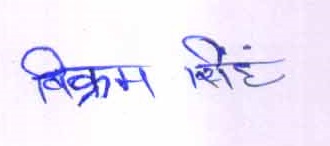 विक्रम सिंह